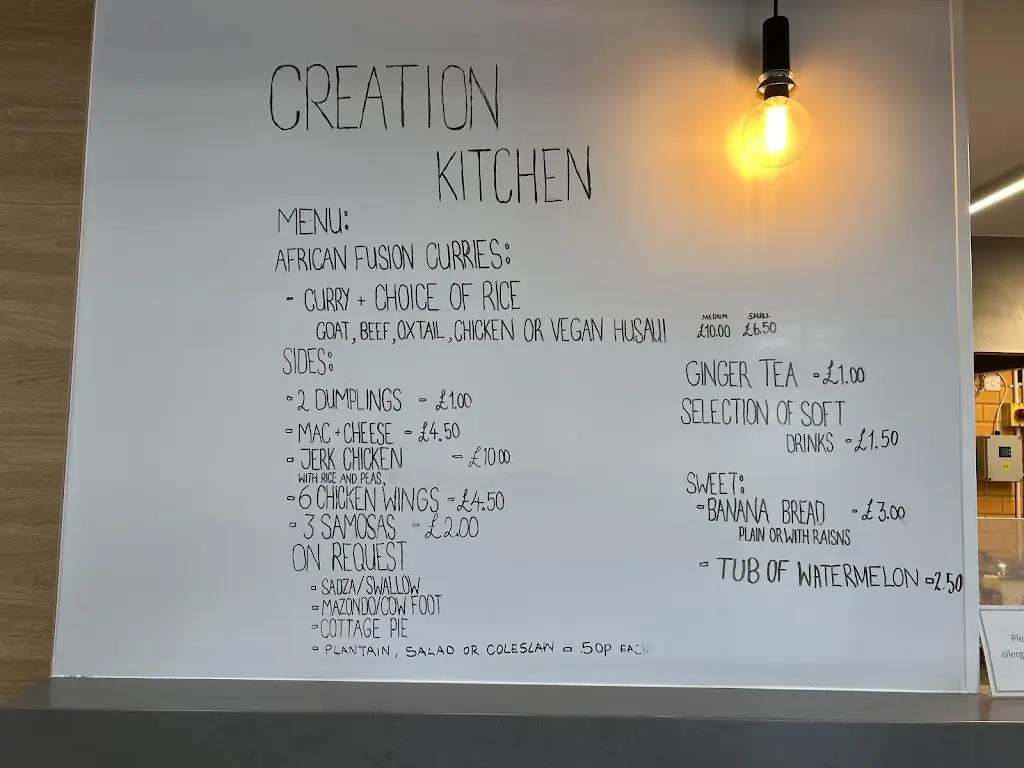 CREATION
KITCHEN
MENU:
AFRICAN FUSION CURRIES:
- CURRY + CHOICE OF RICE
GOAT, BEEF, OXTAIL, CHICKEN OR VEGAN HUSAUI
MEDIUM SMALL
£10.00 £6.50
SIDES:
- 2 DUMPLINGS - £1.00
- MAC + CHEESE - £4.50
- JERK CHICKEN - £10.00
WITH RICE AND PEAS,
- 6 CHICKEN WINGS - £4.50
- 3 SAMOSAS - £2.00
ON REQUEST
- SADZA/SWALLOW
- MAZONDO/COW FOOT
- COTTAGE PIE
- PLANTAIN, SALAD OR COLESLAW - .50P EACH
GINGER TEA - £1.00
SELECTION OF SOFT
DRINKS - £1.50
SWEET:
- BANANA BREAD - £3.00
PLAIN OR WITH RAISNS
- TUB OF WATERMELON - 2.50